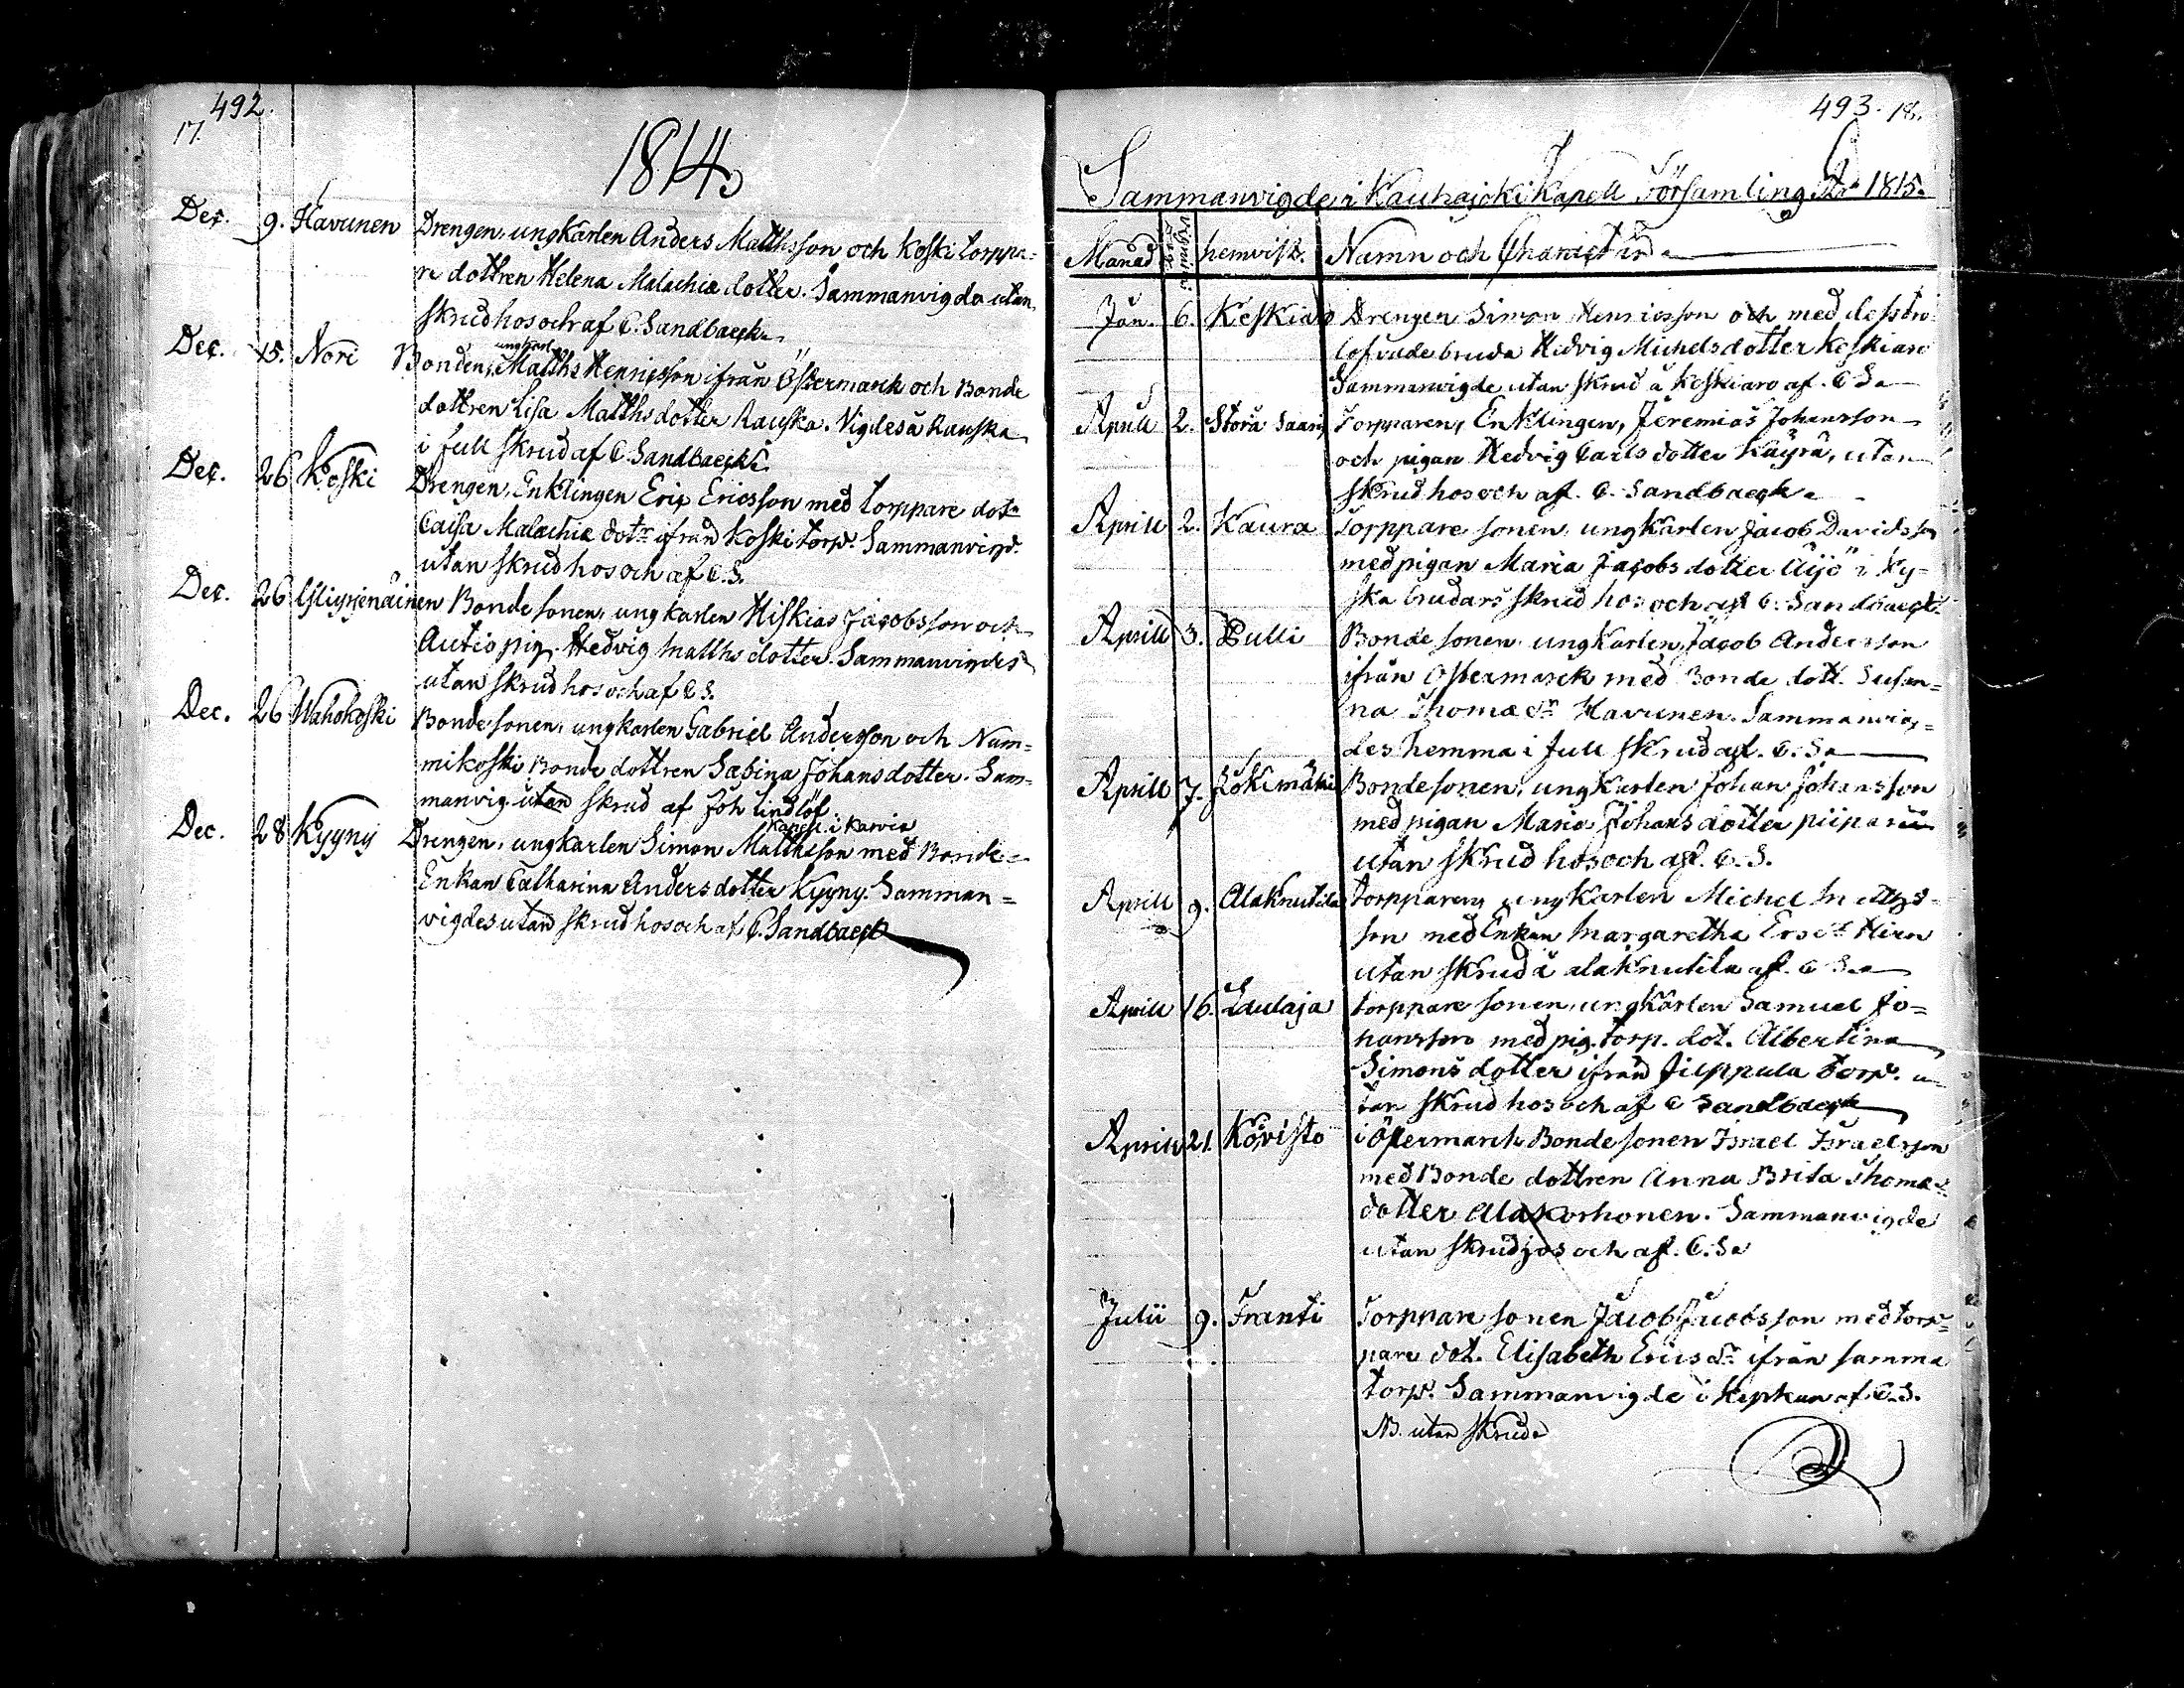 492.
17.
1814
Dec. 9. Havunen Drengen, ungkarlen Anders Matthsson och Koski torppa=
re dottren Helena Malachiæ dotter. Sammanvigda utan
skrud hos och af C. Sandbaeck.
ungkarl
Dec. 15. Nori Bonden, Matths Henricsson ifrån Östermarck och Bonde
dottren Lisa Matthsdotter Rauska. Vigdes å Rauska
i full skrud af C. Sandbaeck.
Dec. 26 Koski Drengen, Enklingen Eric Ericsson med torppare dotr
Caisa Malachiæ dotr ifrån Koski torp. Sammanvigd.
utan skrud hos och af C. S.
Dec. 26 Yliyrjenäinen Bonde sonen, ungkarlen Hiskias Jacobsson och
Autio pig. Hedvig Matths dotter. Sammanvigdes
utan skrud hos och af C S.
Dec. 26 Wahokoski Bonde sonen, ungkarlen Gabriel Andersson och Num=
mikoski Bonde dottren Sabina Johansdotter. Sam=
manvig. utan skrud af Joh Lindlöf
Kapell. i Karvia
Dec. 28 Kyyny Drengen, ungkarlen Simon Matthsson med Bonde=
Enkan Catharina Andersdotter Kyyny. Samman=
vigdes utan skrud hos och af C. Sandbaeck
493. 18.
Sammanvigde i Kauhajoki Kapell Församling År 1815.
Månad hemvist. Namn och Character
Jan. 6. Keskiaro Drengen Simon Henricsson och med dess tro
lofvade bruda Hedvig Michelsdotter Keskiaro
Sammanvigde utan skrud å Keskiaro af. C S.
Aprill 2. Stora Saari Torpparen, Enklingen, Jeremias Johansson
och pigan Hedvig Carls dotter Käyrä, utan
skrud hos och af. C. Sandbaeck.
Aprill 2. Kaura Torppare sonen, ungkarlen Jacob Davidsson
med pigan Maria Jacobs dotter Äijö i Ky=
ska brudars skrud hos och af C. Sandbaeck.
Aprill 3. Pulli Bonde sonen, ungkarlen, Jacob Andersson
ifrån Östermarck med Bonde dott. Susan=
na Thomæ dr Havunen. Sammanvig=
des hemma i full skrud af. C. S.
Aprill 7. Jokimäki Bonde sonen, ungkarlen Johan Johansson
med pigan Maria Johans dotter piipari
utan skrud hos och af. C. S.
Aprill 9. Alaknutila torpparen, ungkarlen Michel Matths=
son med Enkan Margaretha Ersdr Hirn
utan skrud å alaknutila af. C S.
Aprill 16. Laulaja torppare sonen, ungkarlen Samuel Jo=
hansson med pig. torp. dot. Albertina
Simons dotter ifrån Jilppula torp. u=
tan skrud hos och af C Sandbaeck
Aprill 21. Koivisto i Östermarck Bonde sonen Israel Israelsson
med Bonde dottren Anna Brita Thomæ
dotter Alakorhonen. Sammanvigde
utan skrud hos och af. C. S.
Julii 9. Franti Torppare sonen Jacob Jacobsson med torp=
pare dot. Elisabeth Ericsdr ifrån samma
torp. Sammanvigde i Kyrkan af C. S.
NB. utan skrud.